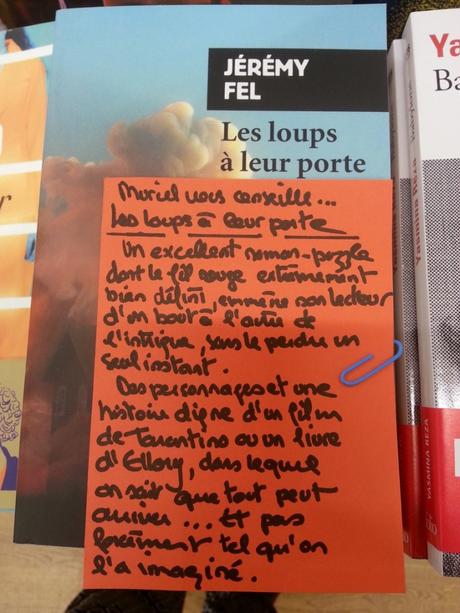 JÉRÉMY
FEL
Les loups
à leur porte
Muriel vous conseille...
Les loups à leur porte
Un excellent roman-puzzle
dont le fil rouge extrêmement
bien défini, emmène son lecteur
d'un bout à l'autre de
l'intrigue, sans le perdre un
seul instant.
Des personnages et une
histoire digne d'un film
de Tarantino ou un livre
d'Ellory, dans lequel
on sait que tout peut
arriver... Et pas
forcément tel qu'on
l'a imaginé.
Ya
Ba
YASMINA REZA